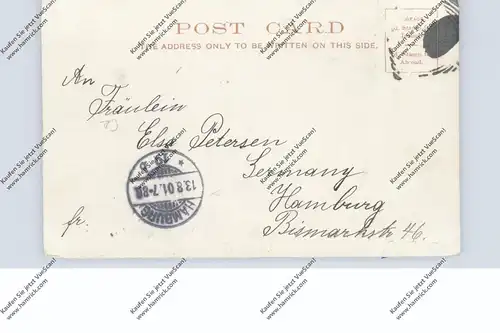 POST CARD
THE ADDRESS ONLY TO BE WRITTEN ON THIS SIDE.
An
Fräulein
Elsa Petersen
Germany
Hamburg
Bismarkstr. 46.
fr.
HAMBURG
13.8.01.7-8
* 19 *
Kaufen Sie jetzt VueScan!
www.hamrick.com